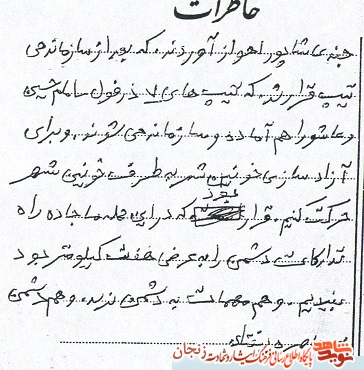 خاطرات
جبهه عاشاپور اهواز آوردند. که بعد از سازماندهی
تیپ قرار شد که تیپ های ۷ ذرفول امام حسین
و عاشورا هم آماده و سازماندهی شوند. و برای
آزاد سازی خونین شهر به طرف خونین شهر
حرکت کنیم. قرار بود که در این حمله ما جاده راه
تدارکات دشمن را به عرض هفت کیلومتر بود
ببندیم. و هم مهمات به دشمن نرسد. و هم دشمن
نوید شاهد
پایگاه اطلاع رسانی فرهنگ ایثار و شهادت زنجان